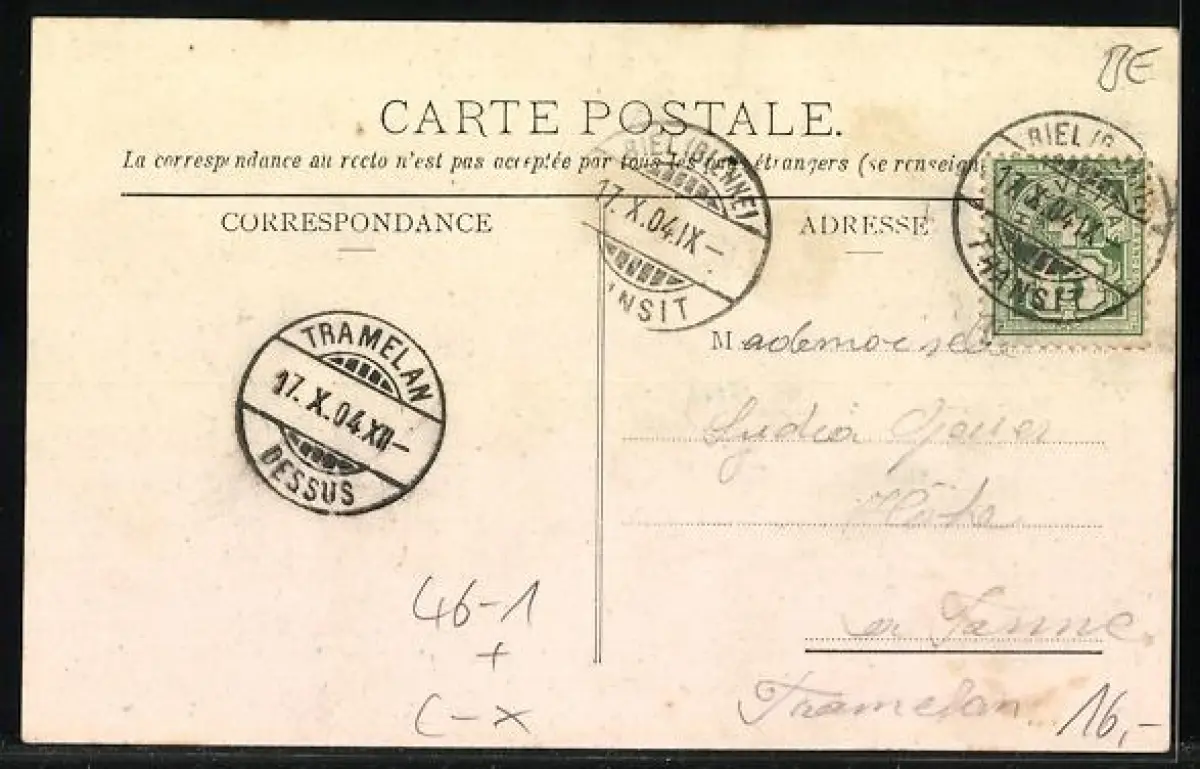 BE
CARTE POSTALE.
La correspondance au recto n'est pas acceptée par tous les pays étrangers (se renseign
CORRESPONDANCE
ADRESSE
BIEL (BIENNE)
17.X.04.IX–
NSIT
BIEL (B
17.X.04.IX
TRANSIT
Mademoiselle
Lydia
TRAMELAN
17.X.04.XII–
DESSUS
46-1
+
C-X
Tramelan
16,-